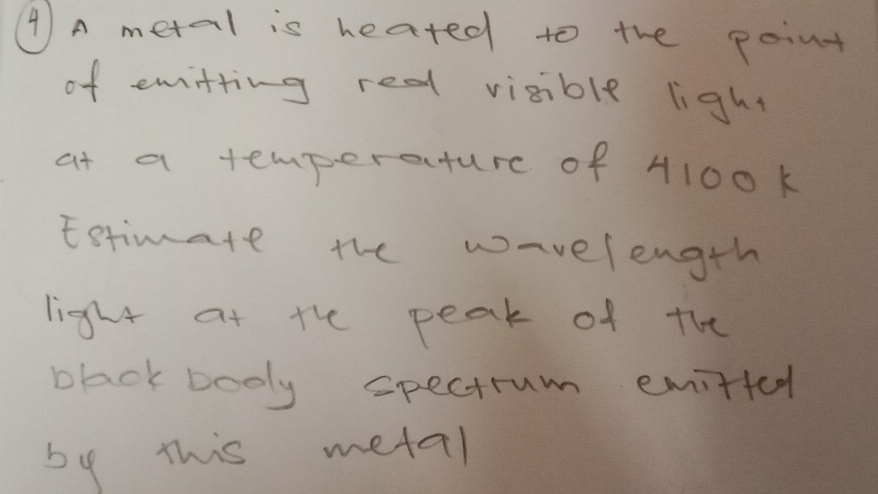 4 A metal is heated to the point
of emitting red visible light
at a temperature of 4100 k
Estimate the wavelength
light at the peak of the
black body spectrum emitted
by this metal